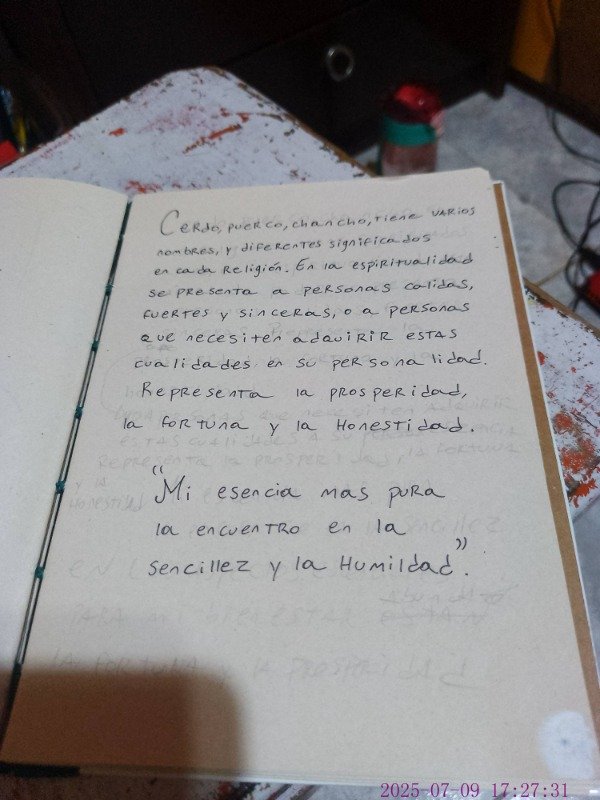 Cerdo, puerco, chancho, tiene varios
nombres, y diferentes significados
en cada religión. En la espiritualidad
se presenta a personas calidas,
fuertes y sinceras, o a personas
que necesiten adquirir estas
cualidades en su personalidad.
Representa la prosperidad,
la fortuna y la honestidad.
"Mi esencia mas pura
la encuentro en la
sencillez y la humildad".
2025-07-09 17:27:31